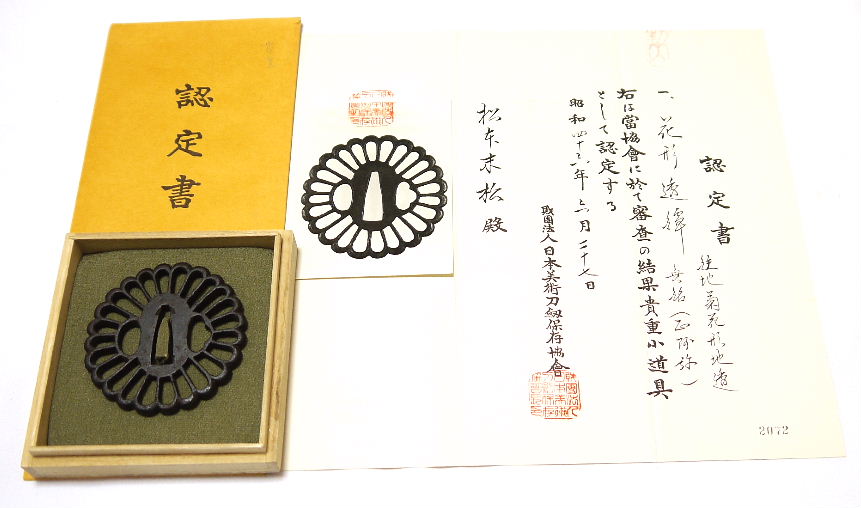 認定書
認定書
一、花形透鐔 無銘(正阿弥)
鉄地菊花形地透
右は當協會に於て審査の結果貴重小道具
として認定する
昭和四十六年六月二十七日
財團法人日本美術刀劍保存協會
松本末松殿
2072